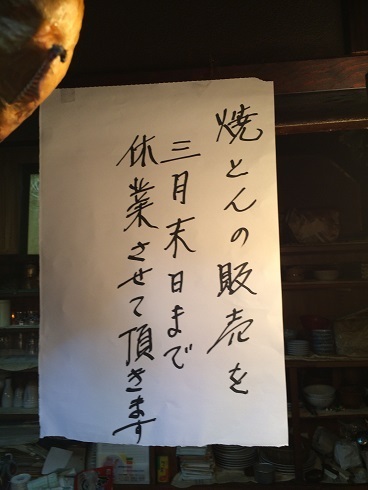 焼とんの販売を
三月末日まで
休業させて頂きます